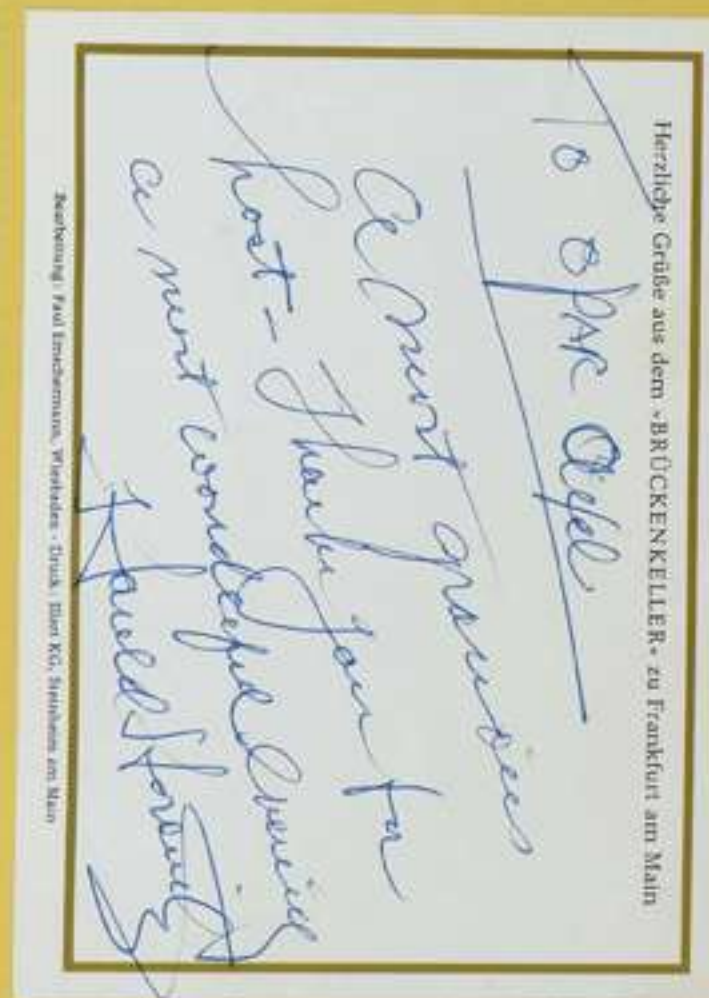 Herzliche Grüße aus dem »BRÜCKENKELLER« zu Frankfurt am Main
To OPAR
A most gracious
host - Thank you for
a most wonderful evening
Harold
Bearbeitung: Paul Emschermann, Wiesbaden - Druck: Illert KG, Steinheim am Main